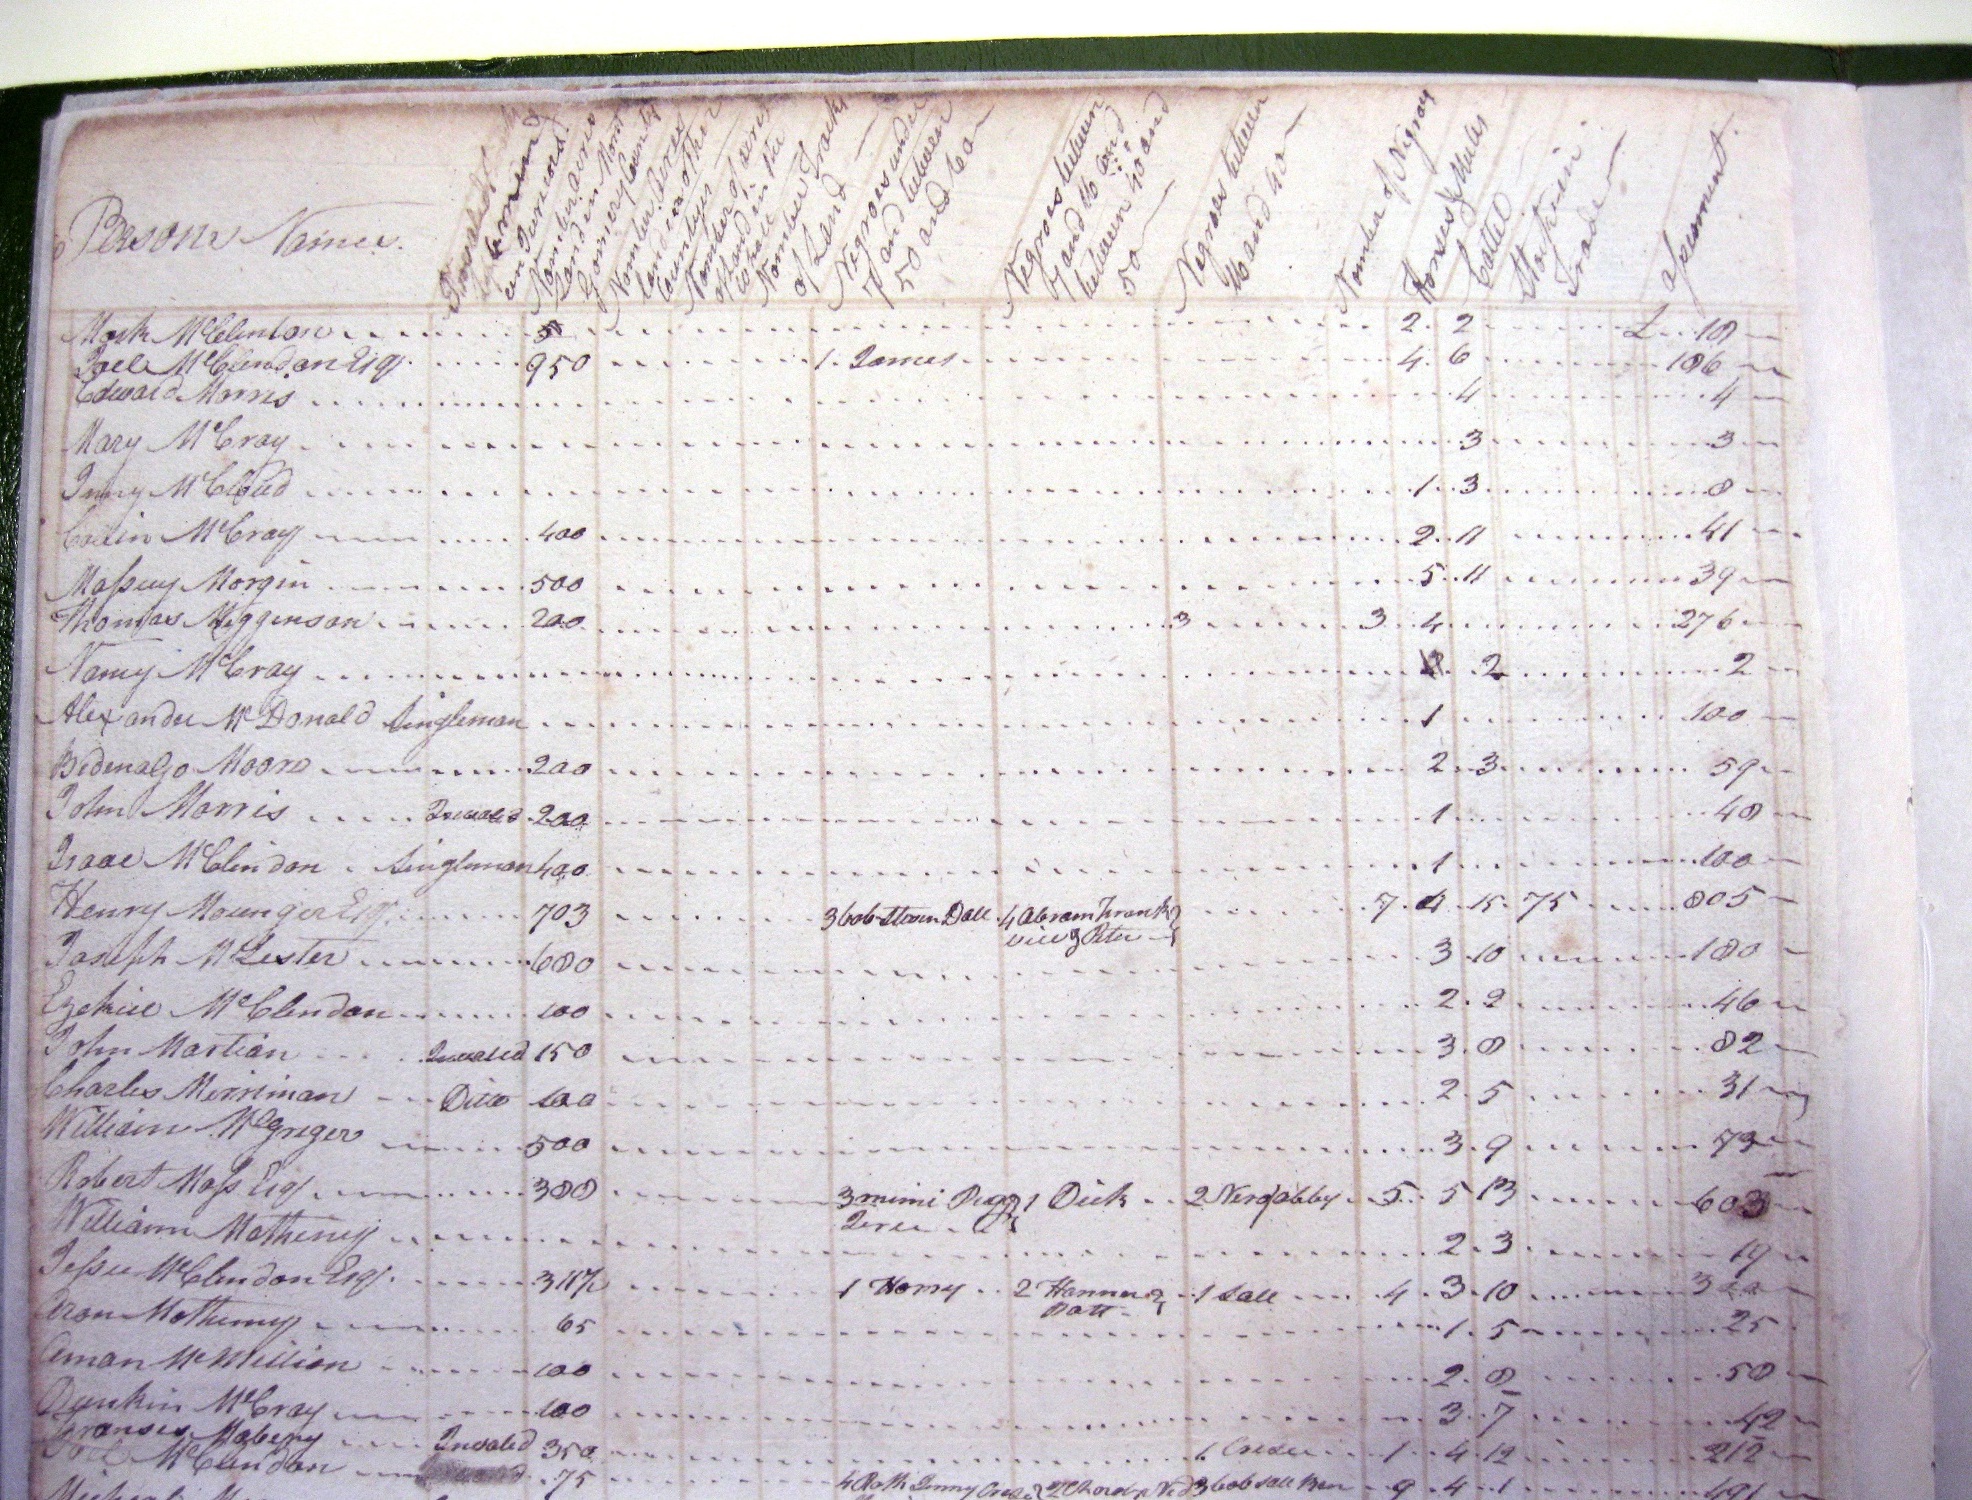 Persons Names.
Invaleds
Number acres Land in Mont gomery County
Number Acres Land in other Countyes
Number of acres of Land in the whole
Number of Tracks of Land
Negroes under 7 and between 50 and 60
Negroes between 7 and 16 and between 40 and 50
Negroes between 16 and 40
Number of Negroy
Horses & Mules
Cattel
Stock in Trade
assesment
Mark McClendon 2 2 £ 18
Joel McClendon Esqr. 950 1 James 4 6 186
Edward Morris 4 4
Mary McCray 3 3
McCloud 1 3 8
Collin McCray 400 2 11 41
Massey Morgin 500 5 11 39
Thomas Higgenson 200 3 3 4 276
Nancy McCray 2 2
Alexander McDonald Singleman 1 100
Bedenago Moore 200 2 3 59
John Morris Invaled 200 1 48
Isaac McClendon Singleman 400 1 100
Henry Mounger Esqr. 703 3 bob Doll 4 Abram Frank 7 4 15 75 805
vice & Peter
Joseph McLester 680 3 10 180
Ezekiel McClendon 100 2 2 46
John Martian Invaled 150 3 8 82
Charles Merriman Ditto 100 2 5 31
William McGreger 500 3 9 73
Robert Moss Esqr 388 3 mimi Pegg 1 Dick 2 Ner & abby 5 5 13 603
William Matheney 2 3 19
Jesse McClendon Esqr. 311½ 1 Harry 2 Hanner & 1 Sall 4 3 10 322
Patt
Aron Matheney 65 1 5 25
Aman McMillion 100 2 8 50
Dunkin McCray 100 3 7 42
Franses Mabery Invaled 350 1 Creser 1 4 12 212
Joel McClendon 75 4 Jenny 2 Ned 3 bob Sall 9 4 1 491